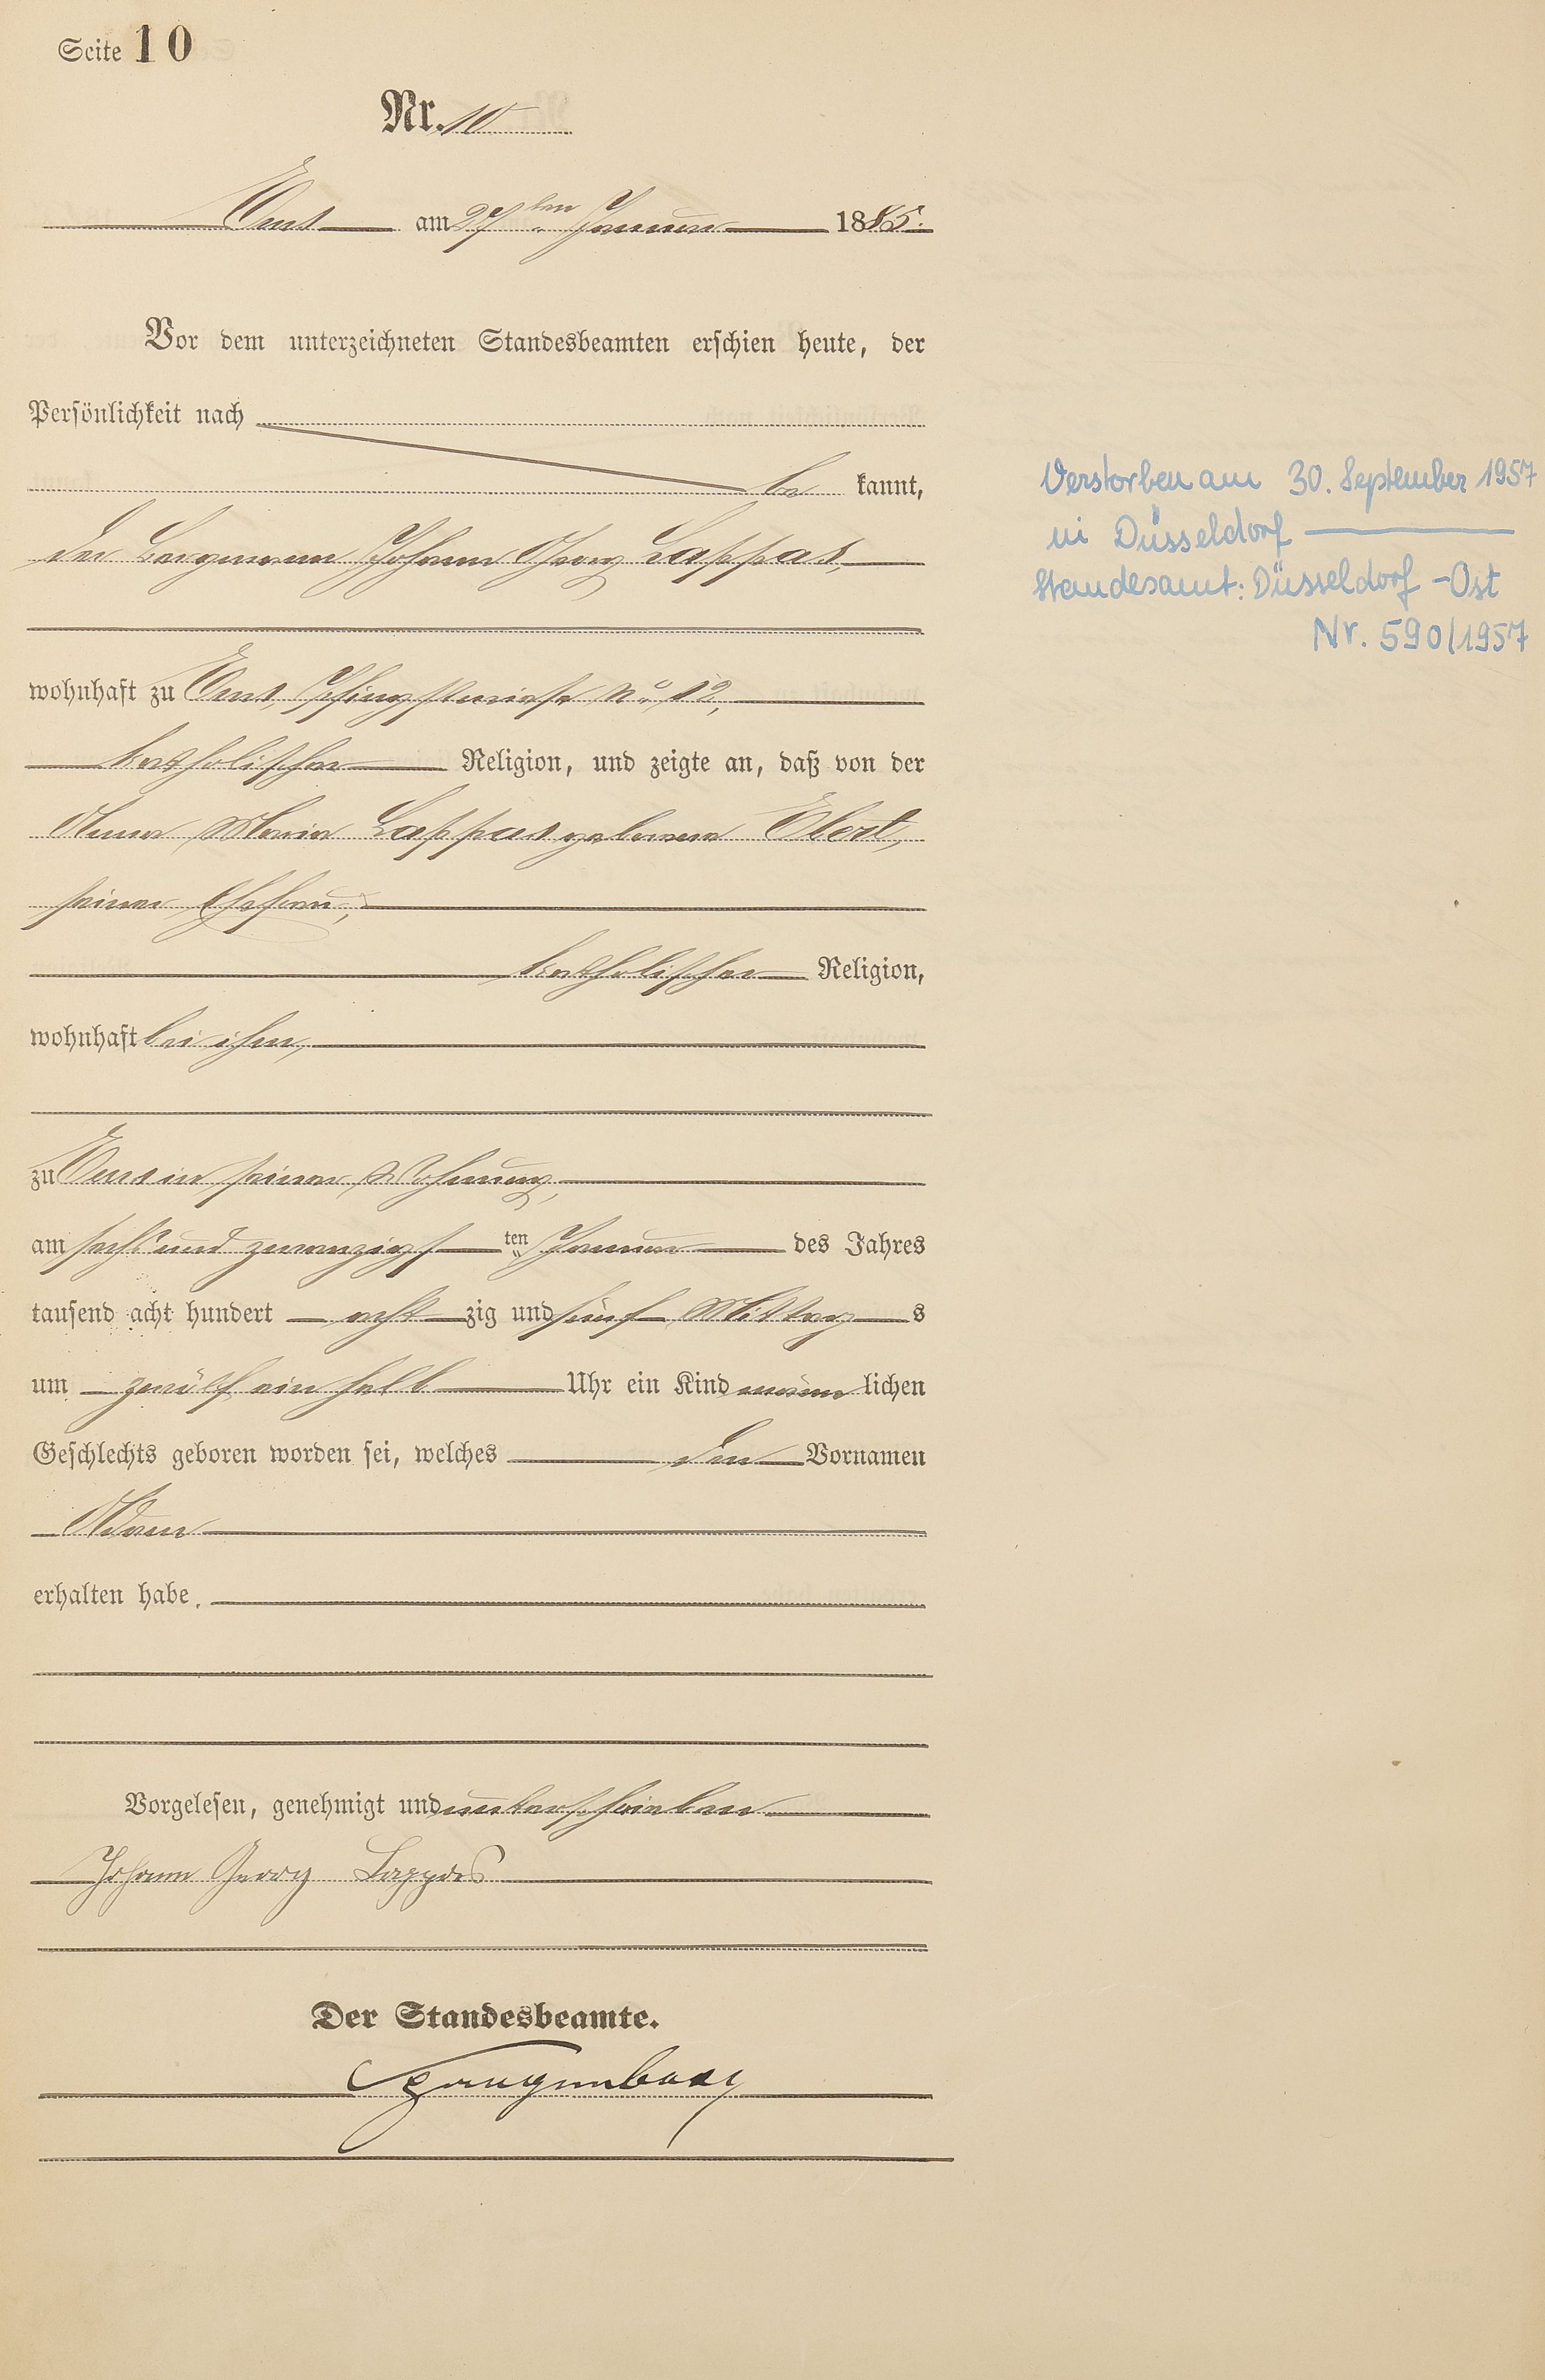 Seite 10
Nr. 10
Ems am 27ten Januar 1885.
Vor dem unterzeichneten Standesbeamten erschien heute, der
Persönlichkeit nach
be kannt,
der Bergmann Johann Georg Lappas,
wohnhaft zu Ems, Pfingstwiese No. 12,
katholischer Religion, und zeigte an, daß von der
Anna Maria Lappas geborenen Ebert,
seiner Ehefrau,
katholischer Religion,
wohnhaft bei ihm,
zu Ems in seiner Wohnung,
am sechs und zwanzigsten Januar des Jahres
tausend acht hundert acht zig und fünf Mittag s
um zwölf ein halb Uhr ein Kind männ lichen
Geschlechts geboren worden sei, welches den Vornamen
Adam
erhalten habe.
Vorgelesen, genehmigt und unterschrieben
Johann Georg Lappas
Der Standesbeamte.
Verstorben am 30. September 1957
in Düsseldorf
Standesamt: Düsseldorf-Ost
Nr. 590/1957